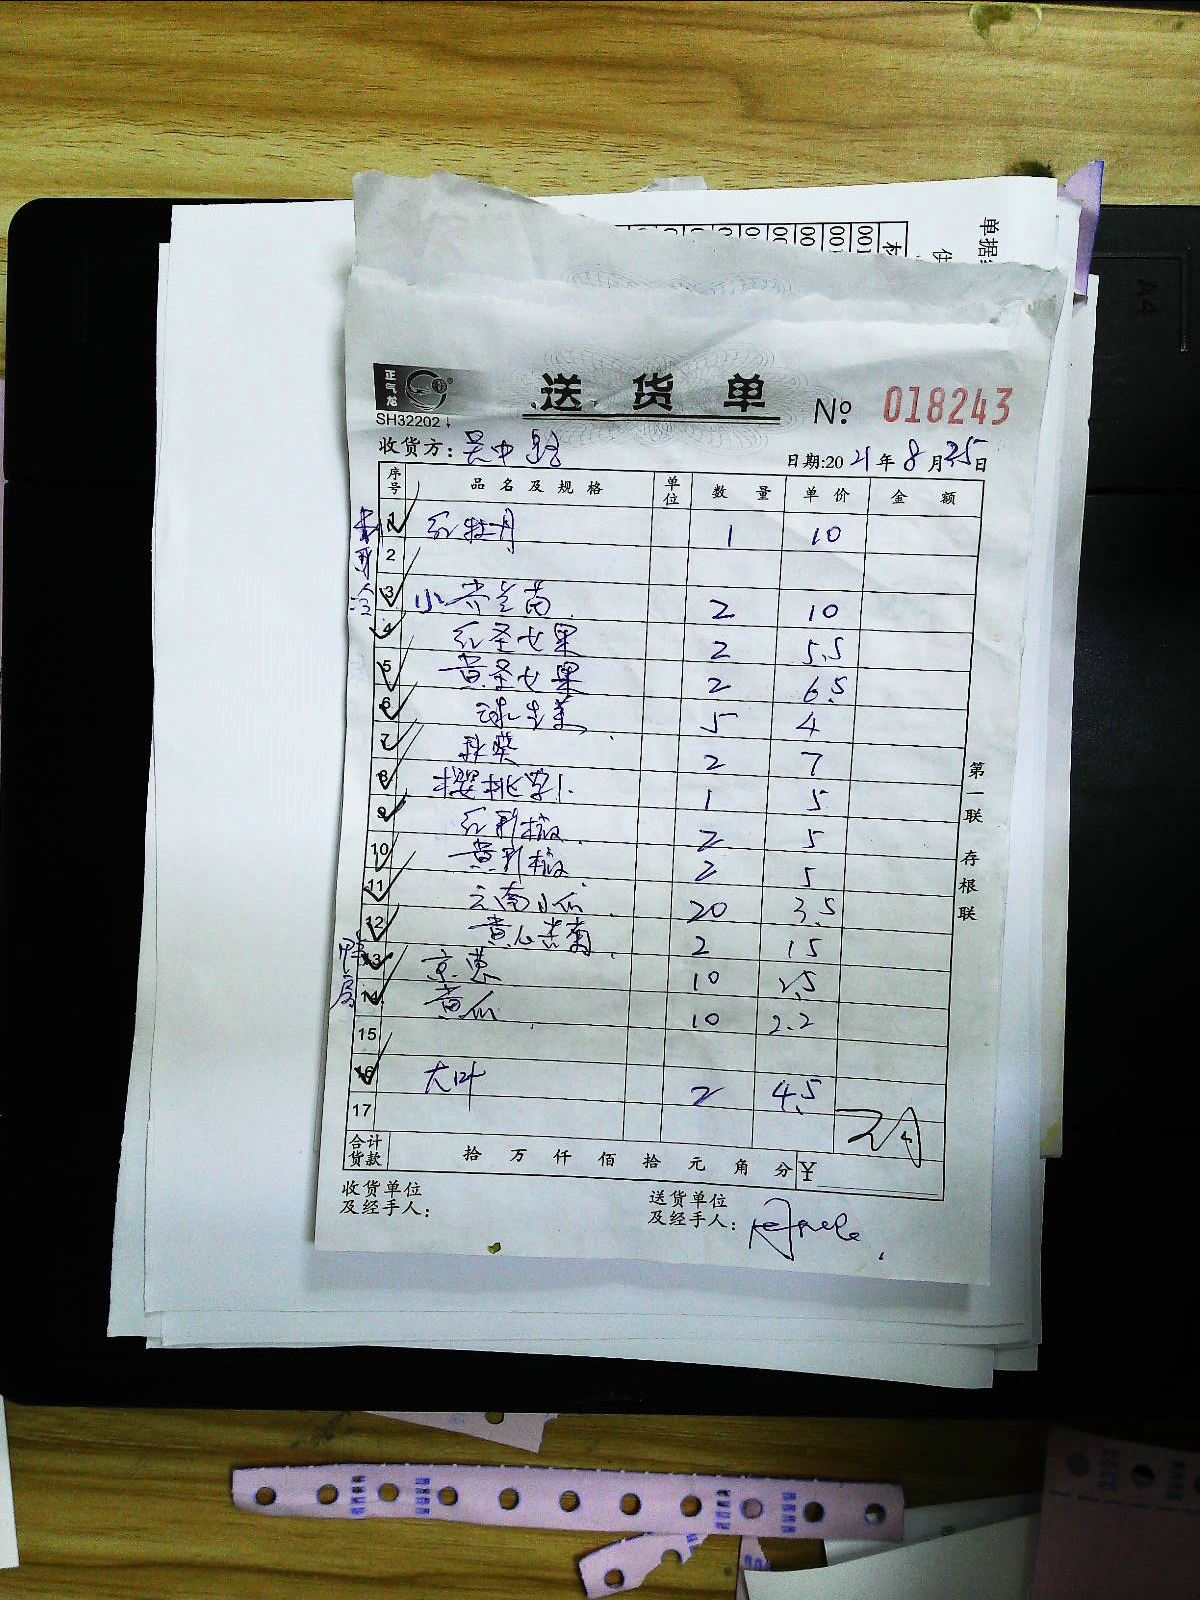 单据
供
材
001
001
00
00
正气龙
SH32202
送货单
№ 018243
收货方：吴中路
日期:2021年8月25日
序号 品名及规格 单位 数量 单价 金额
1 红牡丹 1 10
2
3 小 苗 2 10
4 红圣女果 2 5.5
5 黄圣女果 2 6.5
6 球生菜 5 4
7 秋葵 2 7
8 樱桃萝卜 1 5
9 红彩椒 2 5
10 黄彩椒 2 5
11 云南小瓜 20 3.5
12 黄心苦菊 2 15
鸭房
13 京葱 10 2.5
14 黄瓜 10 2.2
15
16 大叶 2 4.5
17
合计货款 拾万仟佰拾元角分 ¥
收货单位及经手人：
送货单位及经手人：
第一联 存根联
A4